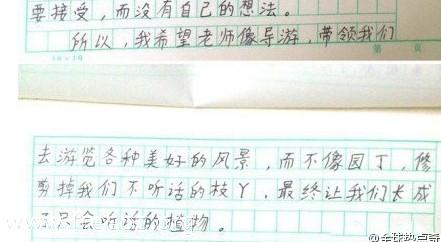 要接受，而没有自己的想法。
所以，我希望老师像导游，带领我们
第 页
去游览各种美好的风景，而不像园丁，修
剪掉我们不听话的枝丫，最终让我们长成
了只会听话的植物。